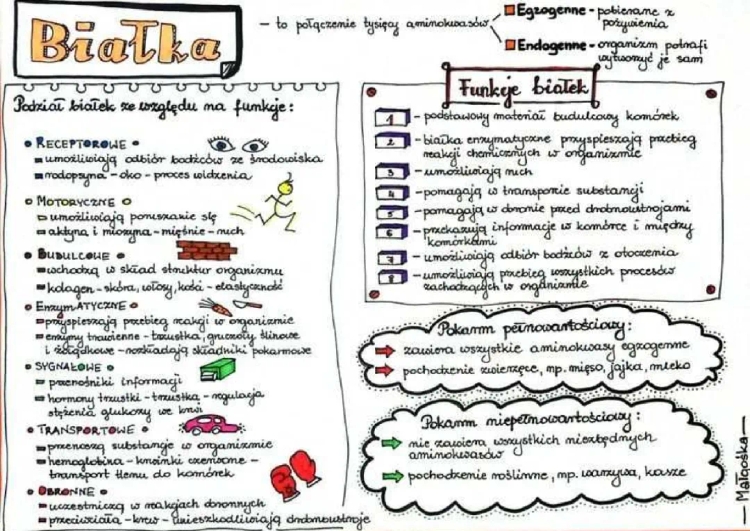 Białka
– to połączenie tysięcy aminokwasów
Egzogenne – pobierane z
pożywienia
Endogenne – organizm potrafi
wytworzyć je sam
Podział białek ze względu na funkcje:
RECEPTOROWE
umożliwiają odbiór bodźców ze środowiska
rodopsyna – oko – proces widzenia
MOTORYCZNE
umożliwiają poruszanie się
aktyna i miozyna – mięśnie – ruch
BUDULCOWE
wchodzą w skład struktur organizmu
kolagen – skóra, włosy, kości – elastyczność
ENZYMATYCZNE
przyspieszają przebieg reakcji w organizmie
enzymy trawienne – trzustka, gruczoły ślinowe
i żołądkowe – rozkładają składniki pokarmowe
SYGNAŁOWE
przenośniki informacji
hormony trzustki – trzustka – regulacja
stężenia glukozy we krwi
TRANSPORTOWE
przenoszą substancje w organizmie
hemoglobina – krwinki czerwone –
transport tlenu do komórek
OBRONNE
uczestniczą w reakcjach obronnych
przeciwciała – krew – unieszkodliwiają drobnoustroje
Funkcje białek
1 – podstawowy materiał budulcowy komórek
2 – białka enzymatyczne przyspieszają przebieg
reakcji chemicznych w organizmie
3 – umożliwiają ruch
4 – pomagają w transporcie substancji
5 – pomagają w obronie przed drobnoustrojami
6 – przekazują informacje w komórce i między
komórkami
7 – umożliwiają odbiór bodźców z otoczenia
8 – umożliwiają przebieg wszystkich procesów
zachodzących w organizmie
Pokarm pełnowartościowy:
zawiera wszystkie aminokwasy egzogenne
pochodzenie zwierzęce, np. mięso, jajka, mleko
Pokarm niepełnowartościowy:
nie zawiera wszystkich niezbędnych
aminokwasów
pochodzenie roślinne, np. warzywa, kasze
Małgośka